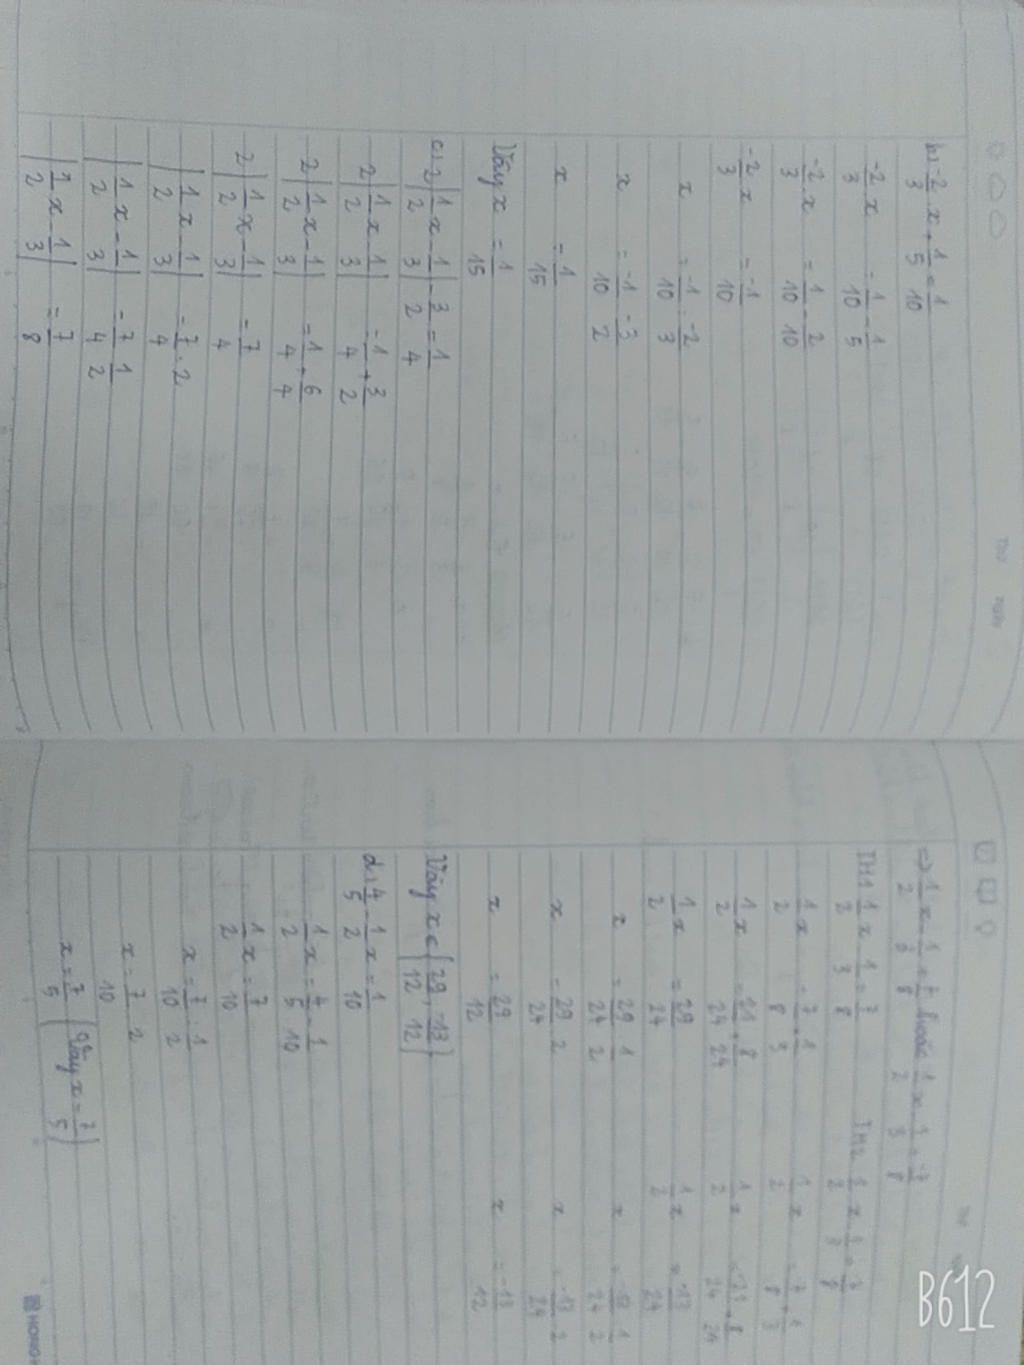 b) -2/3 x + 1/5 = 1/10
-2/3 x = 1/10 - 1/5
-2/3 x = 1/10 - 2/10
-2/3 x = -1/10
x = -1/10 : -2/3
x = -1/10 . -3/2
x = 1/15 .
Vậy x = 1/15
c) 2|1/2 x - 1/3| - 3/2 = 1/4
2|1/2 x - 1/3| = 1/4 + 3/2
2|1/2 x - 1/3| = 1/4 + 6/4
2|1/2 x - 1/3| = 7/4
|1/2 x - 1/3| = 7/4 : 2
|1/2 x - 1/3| = 7/4 . 1/2
|1/2 x - 1/3| = 7/8
=> 1/2 x - 1/3 = 7/8 hoặc 1/2 x - 1/3 = -7/8
TH1 1/2 x - 1/3 = 7/8 TH2 1/2 x - 1/3 = -7/8
1/2 x = 7/8 + 1/3 1/2 x = -7/8 + 1/3
1/2 x = 21/24 + 8/24 1/2 x = -21/24 + 8/24
1/2 x = 29/24 1/2 x = -13/24
x = 29/24 : 1/2 x = -13/24 : 1/2
x = 29/24 . 2 x = -13/24 . 2
x = 29/12 x = -13/12
Vậy x ∈ {29/12, -13/12}
d) 4/5 - 1/2 x = 1/10
1/2 x = 4/5 - 1/10
1/2 x = 7/10
x = 7/10 : 1/2
x = 7/10 . 2
x = 7/5 (Vậy x = 7/5)
B612